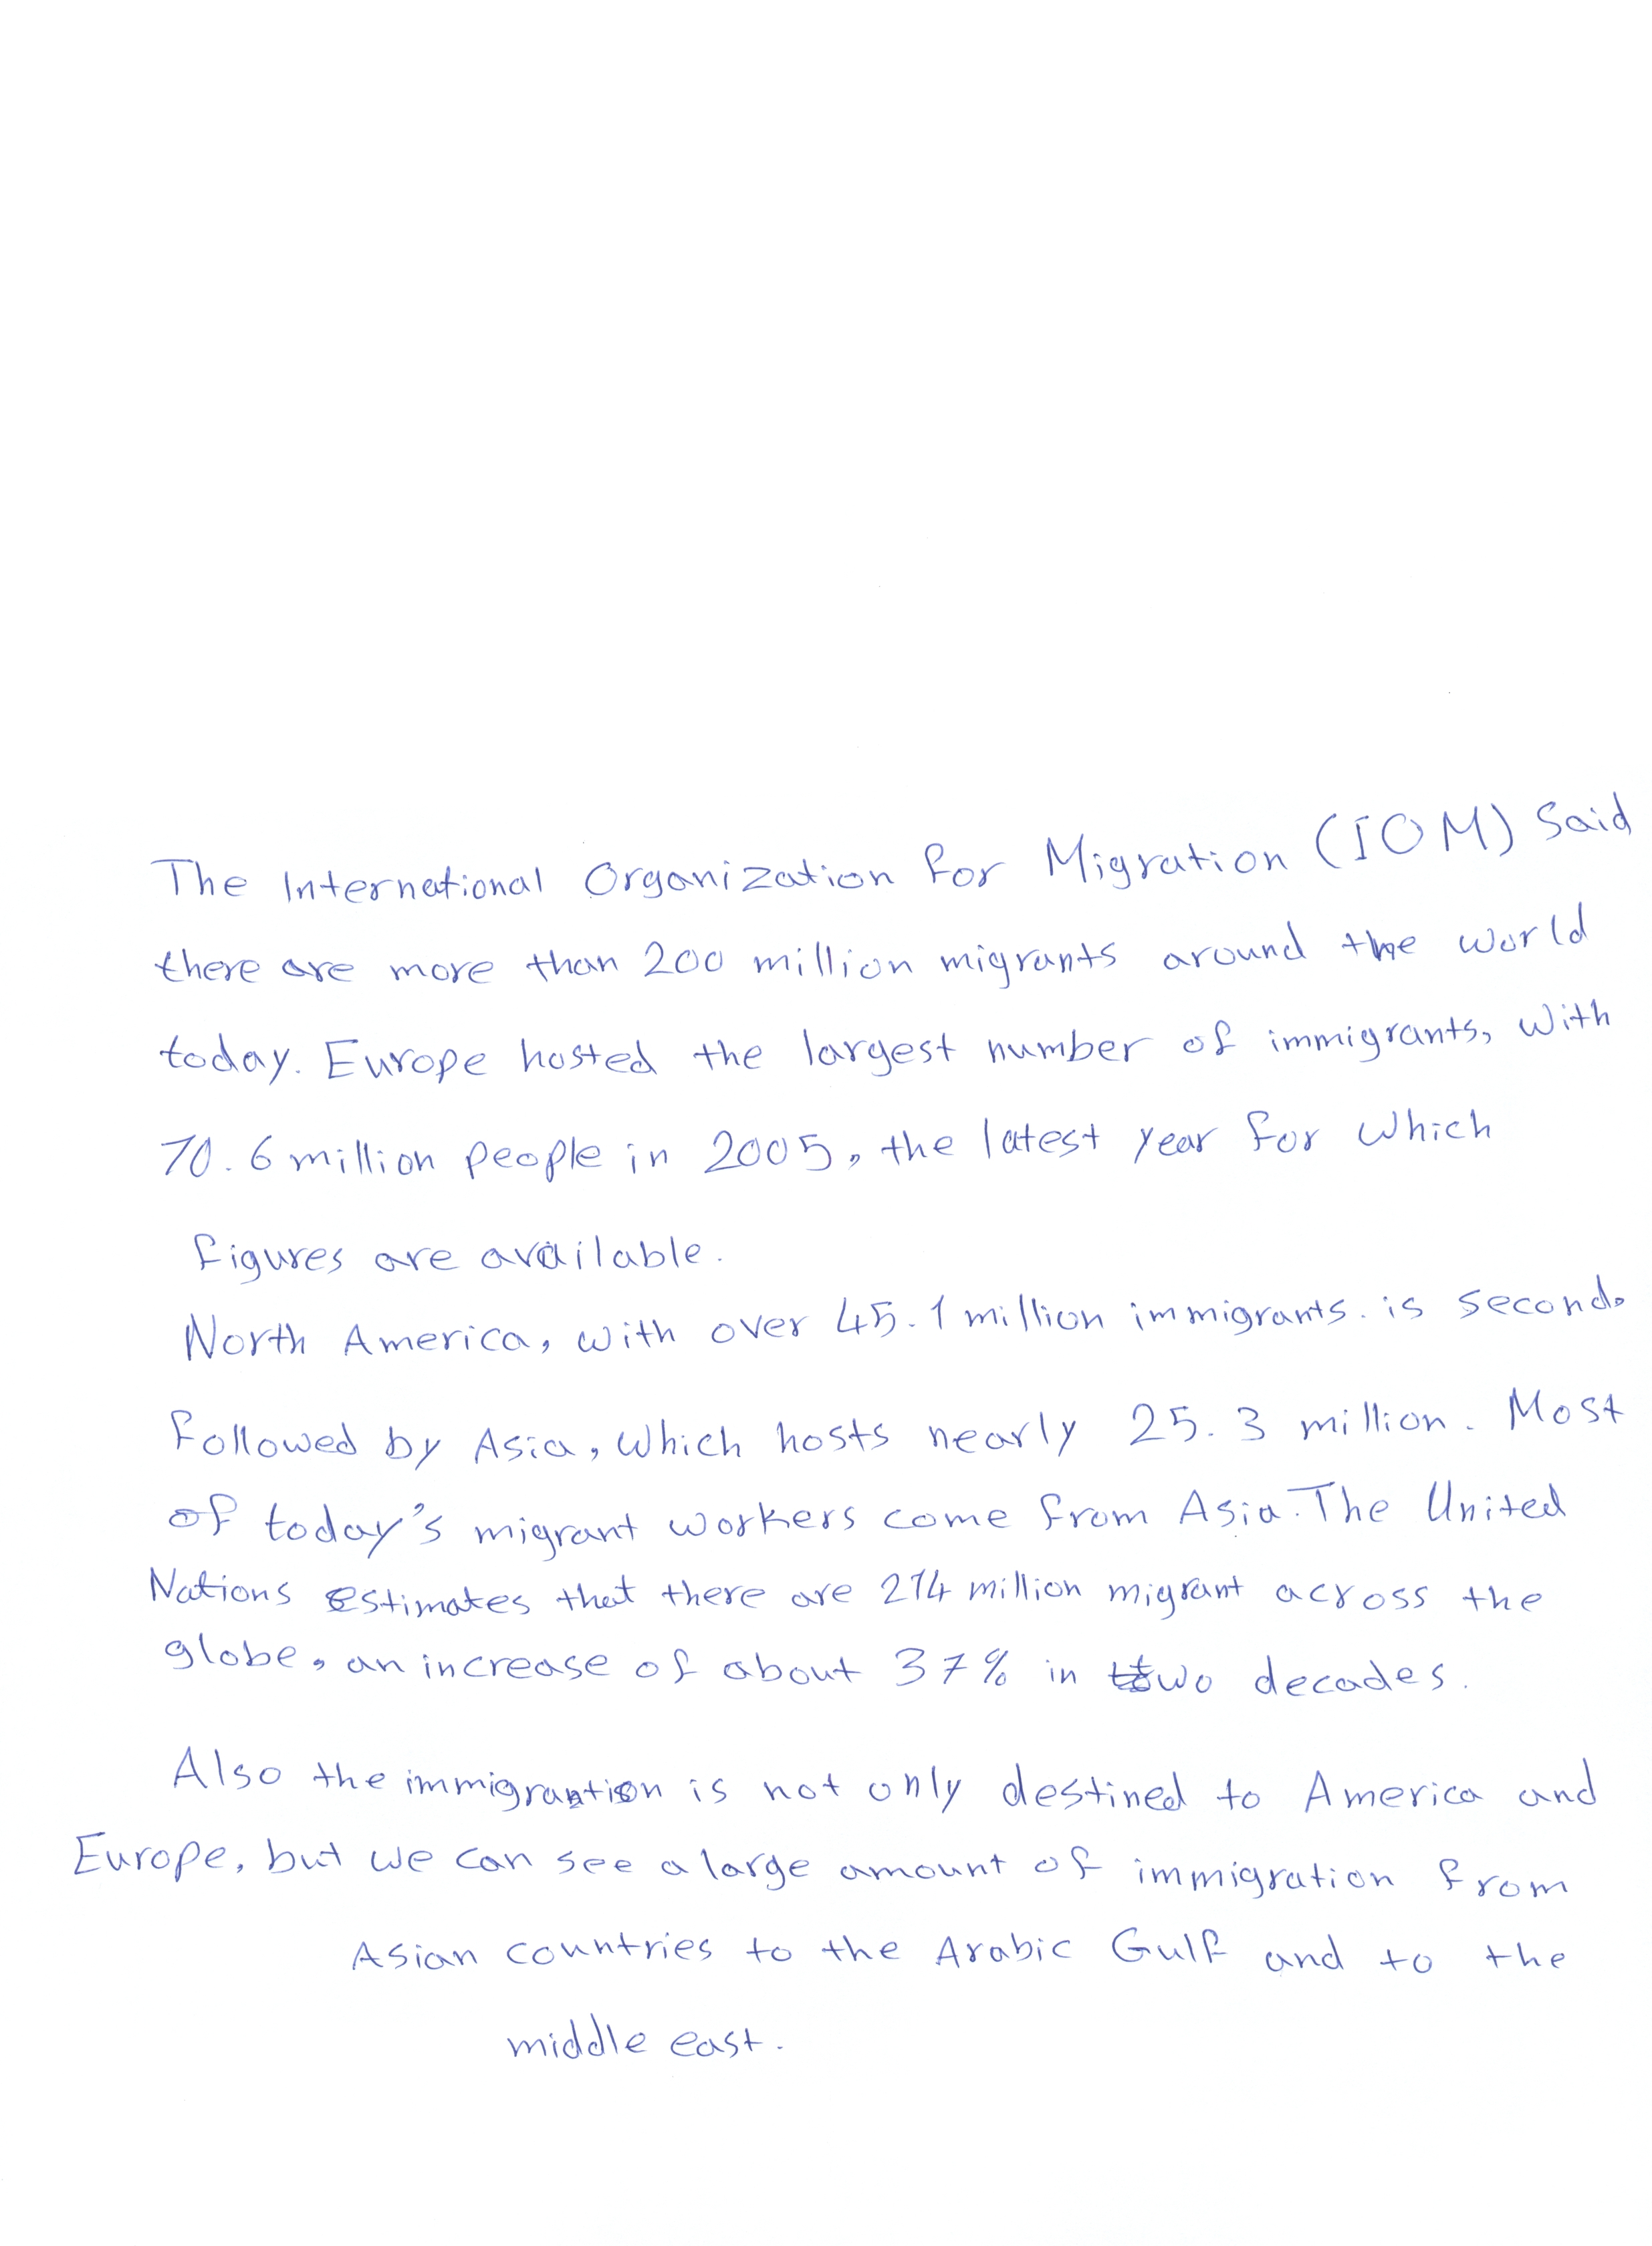 The International Organization for Migration (IOM) Said
there are more than 200 million migrants around the world
today. Europe hosted the largest number of immigrants, with
70.6 million people in 2005, the latest year for which
figures are available.
North America, with over 45.1 million immigrants. is second,
Followed by Asia, which hosts nearly 25.3 million. Most
of today's migrant workers come from Asia. The United
Nations estimates that there are 214 million migrant across the
globe, an increase of about 37% in two decades.
Also the immigrantion is not only destined to America and
Europe, but we can see a large amount of immigration from
Asian countries to the Arabic Gulf and to the
middle east.